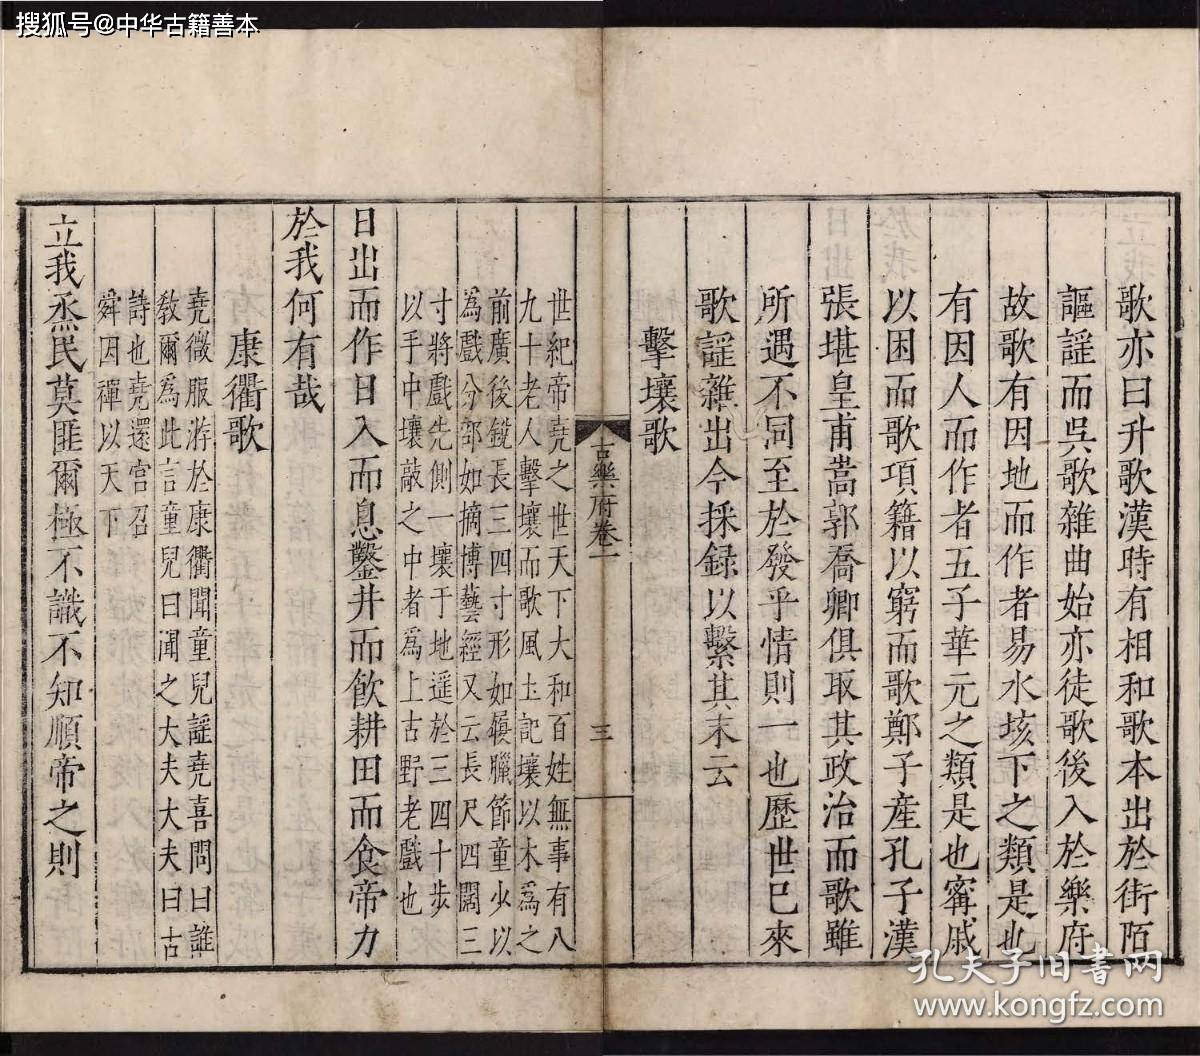 搜狐号@中华古籍善本
歌亦曰升歌漢時有相和歌本出於街陌
謳謠而吳歌雜曲始亦徒歌後入於樂府
故歌有因地而作者易水垓下之類是也
有因人而作者五子華元之類是也甯戚
以困而歌項籍以窮而歌鄭子產孔子漢
張堪皇甫嵩郭喬卿俱取其政治而歌雖
所遇不同至於發乎情則一也歷世已來
歌謡雜出今採録以繫其末云
擊壤歌
古樂府卷一
三
世紀帝堯之世天下大和百姓無事有八
九十老人擊壤而歌風土記壤以木為之
前廣後銳長三四寸形如履臘節童少以
為戲分部如摘博藝經又云長尺四闊三
寸將戲先側一壤于地遥於三四十步
以手中壤敲之中者為上古野老戲也
日出而作日入而息鑿井而飲耕田而食帝力
於我何有哉
康衢歌
堯微服游於康衢聞童兒謡堯喜問曰誰
敎爾爲此言童兒曰聞之大夫大夫曰古
詩也堯還宫召
舜因禪以天下
立我烝民莫匪爾極不識不知順帝之則
孔夫子旧书网
www.kongfz.com